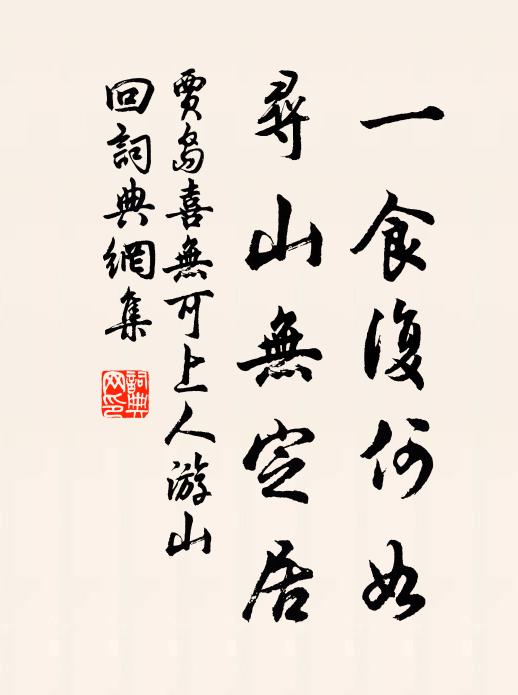 一食復何如
尋山無定居
賈島喜無可上人游山
回詞典網集
詞典
网印